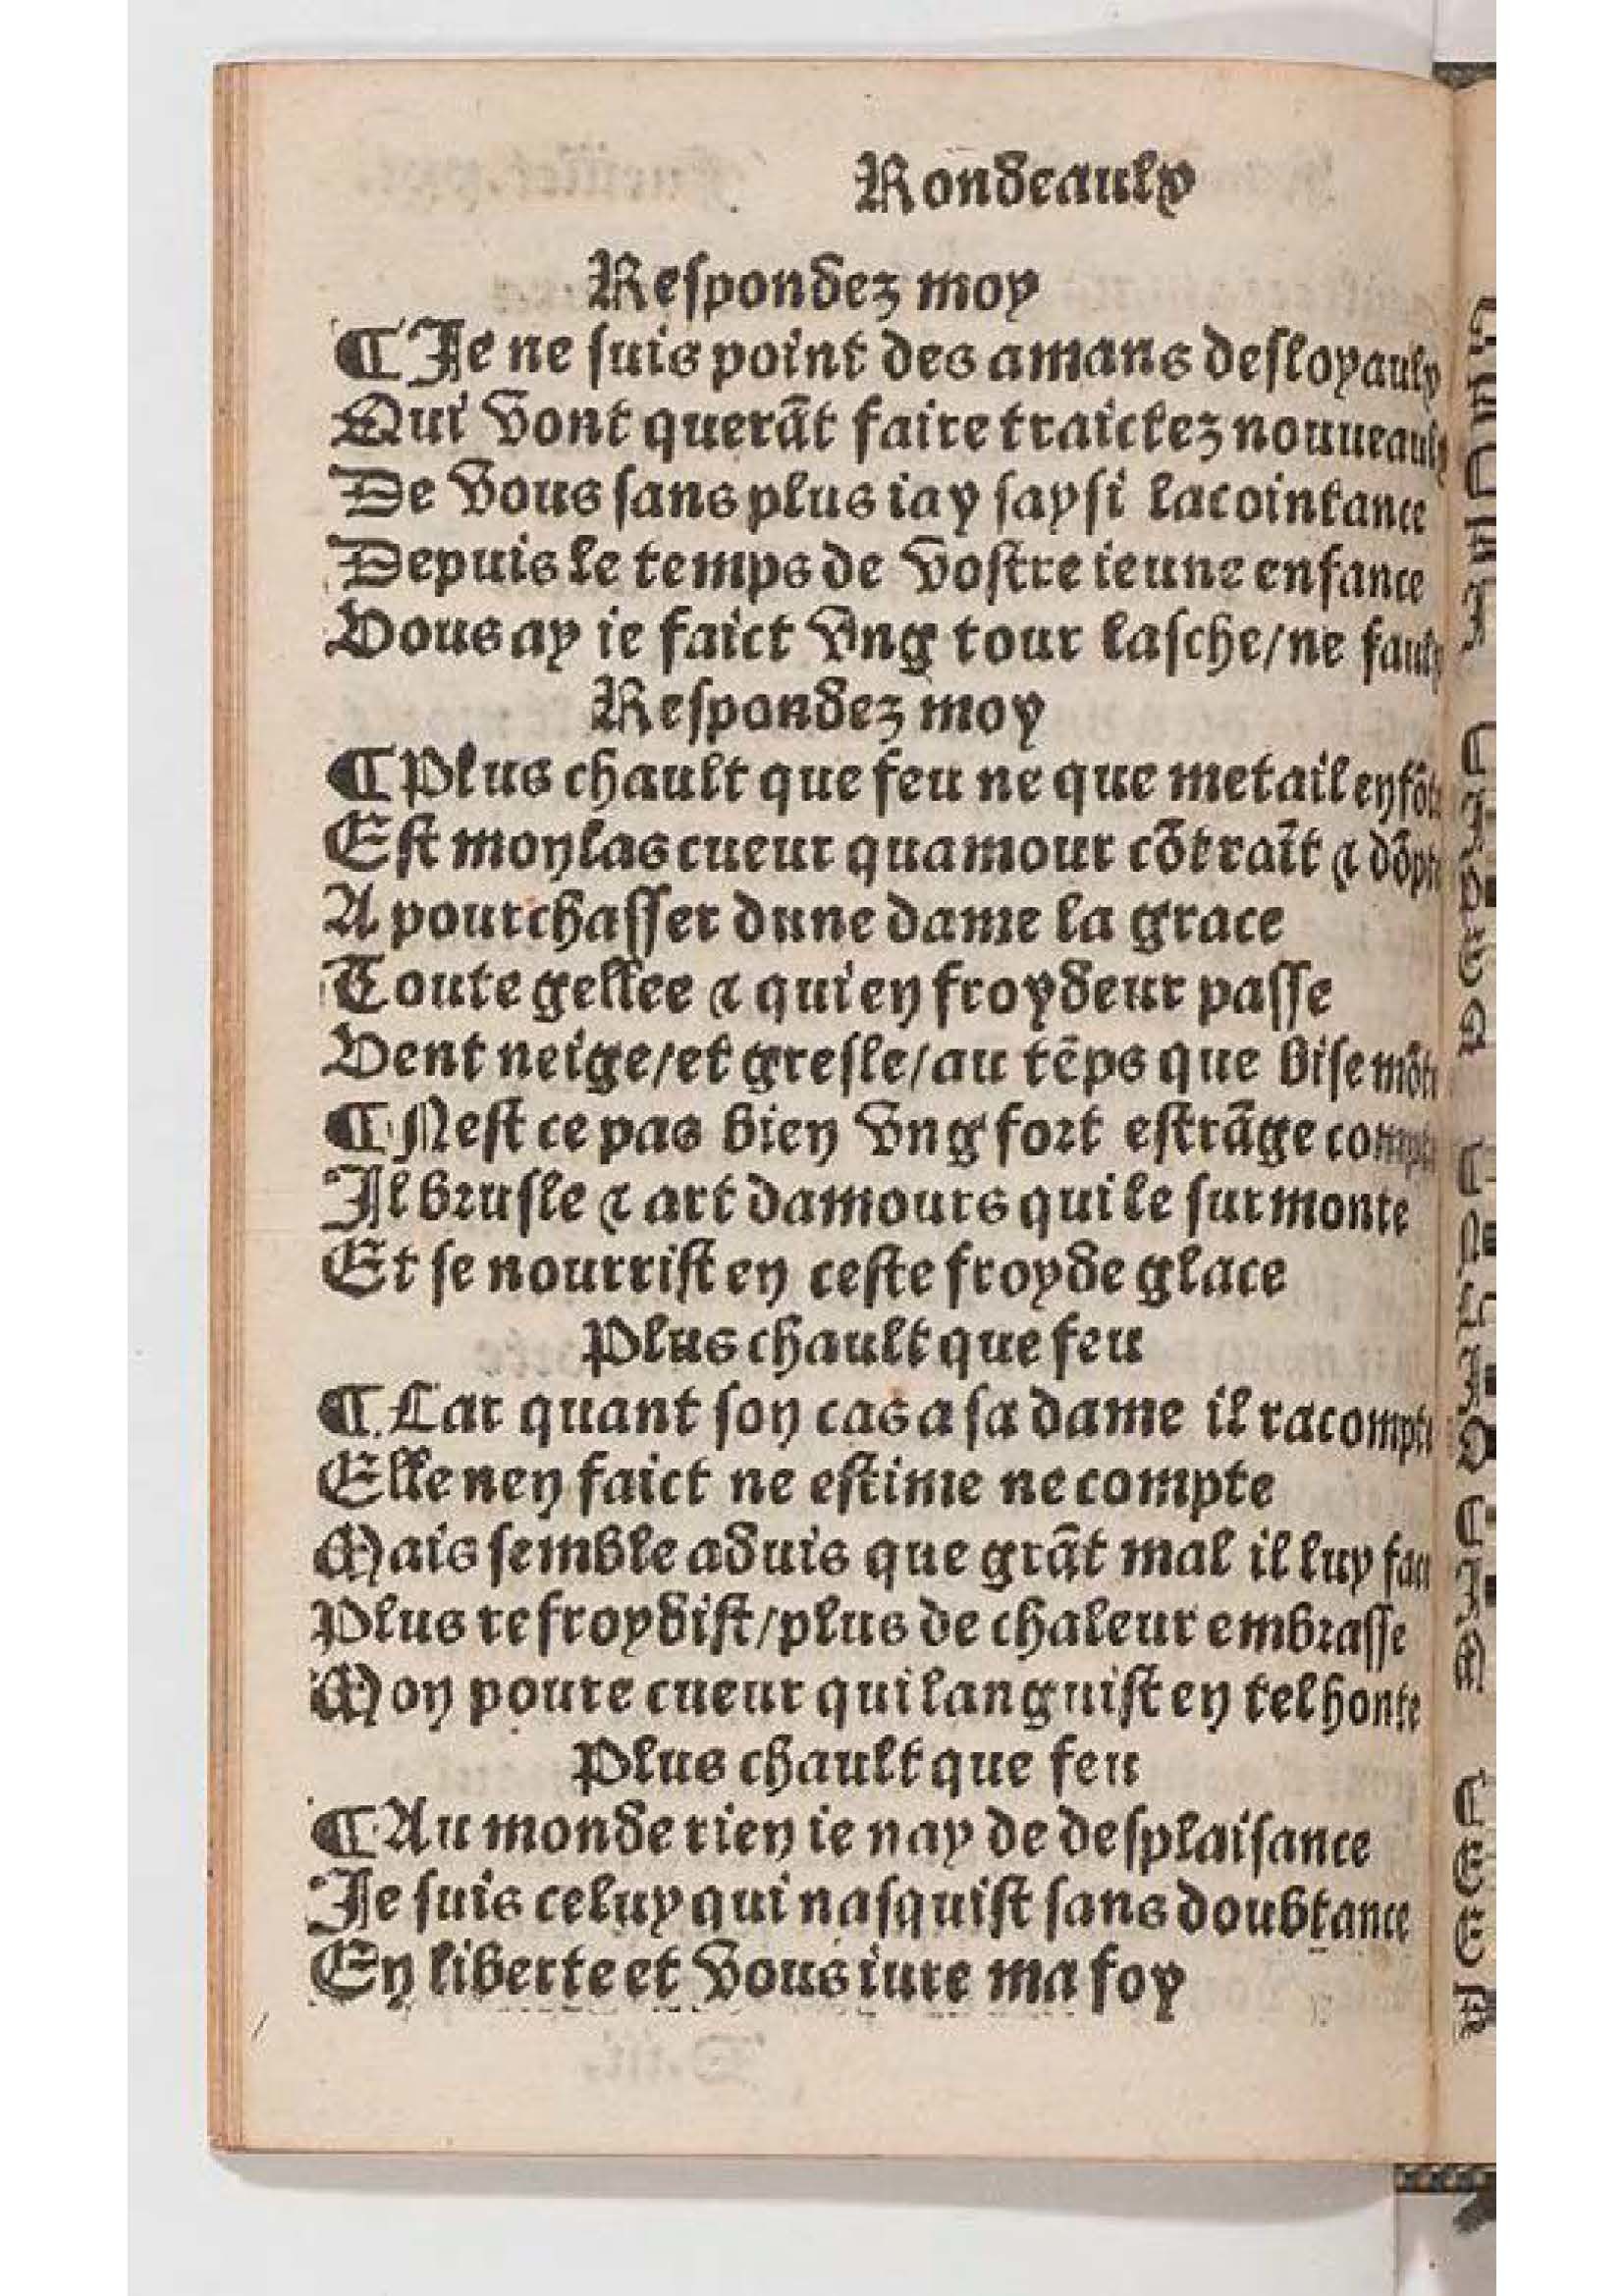 Rondeaulx
Respondez moy
¶ Je ne suis point des amans desloyaulx
Qui vont querãt faire traictez nouueaulx
De vous sans plus iay saysi lacointance
Depuis le temps de vostre ieune enfance
Vous ay ie faict vng tour lasche/ne faulx
Respondez moy
¶ Plus chault que feu ne que metail en fõte
Est mon las cueur quamour cõtraĩt & dõpte
A pourchasser dune dame la grace
Toute gellee & qui en froydeur passe
Vent neige/et gresle/au tẽps que bise mõte
¶ Nest ce pas bien vng fort estrãge compte
Il brusle & art damours qui le surmonte
Et se nourrist en ceste froyde glace
Plus chault que feu
¶ Car quant son cas a sa dame il racompte
Elle nen faict ne estime ne compte
Mais semble aduis que grãt mal il luy
Plus refroydist/plus de chaleur embrasse
Mon poure cueur qui languist en tel honte
Plus chault que feu
¶ Au monde rien ie nay de desplaisance
Je suis celuy qui nasquist sans doubtance
En liberte et vous iure ma foy